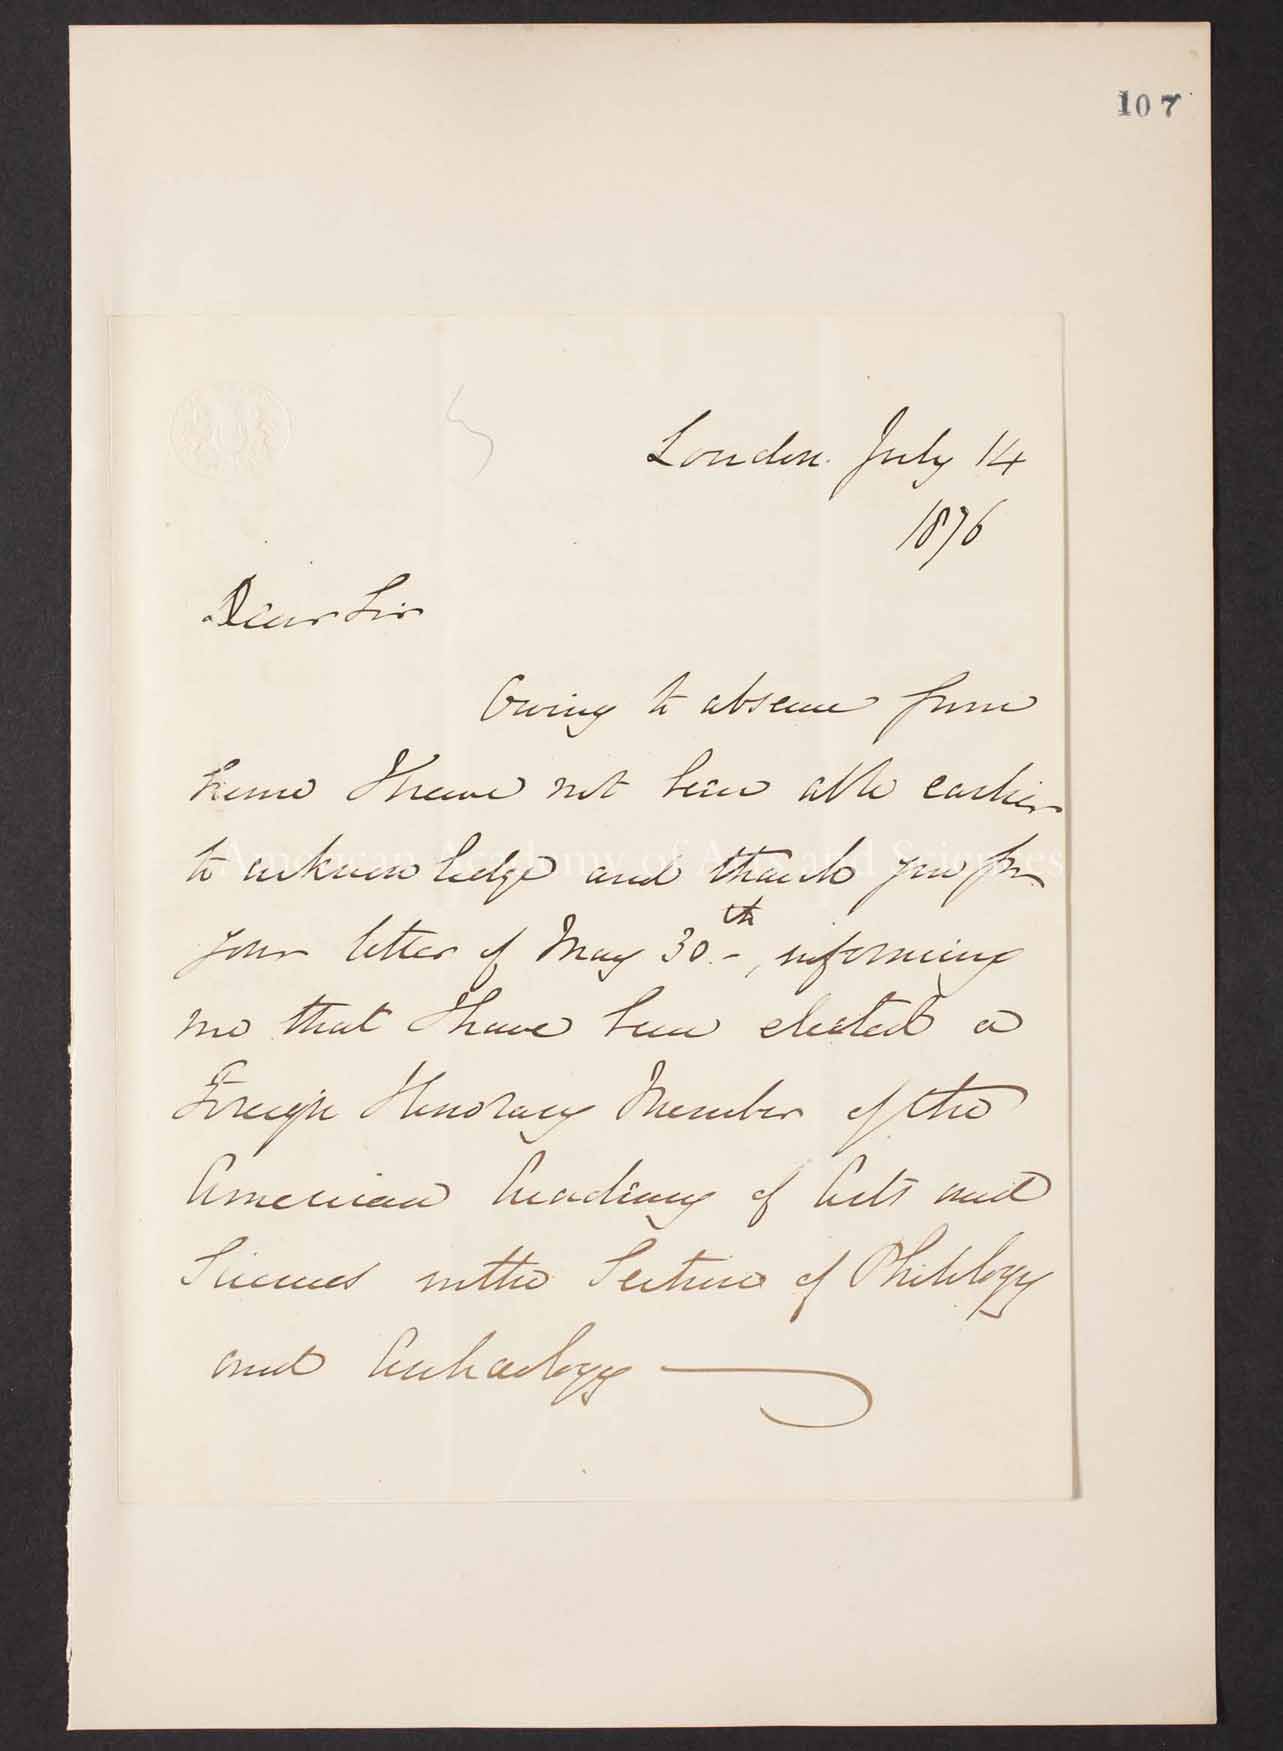 107
London. July 14
1876
Dear Sir
Owing to absence from
home I have not been able earlier
to acknowledge and thank you for
your letter of May 30th, informing
me that I have been elected a
Foreign Honorary Member of the
American Academy of Arts and
Sciences in the Section of Philology
and Archaeology
American Academy of Arts and Sciences